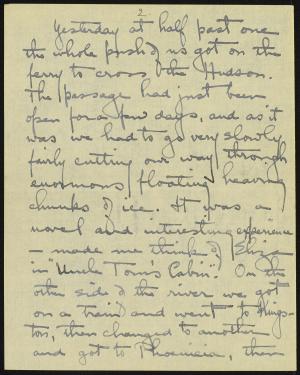 2
Yesterday at half past one
the whole push of us got on the
ferry to cross the Hudson.
The passage had just been
open for a few days, and as it
was we had to go very slowly
fairly cutting our way through
enormous floating heaving
chunks of ice. It was a
novel and interesting experience
— made me think of Eliza
in "Uncle Tom's Cabin". On the
other side of the river we got
on a train and went to Kings-
ton, then changed to another
and got to Phoenicia, then